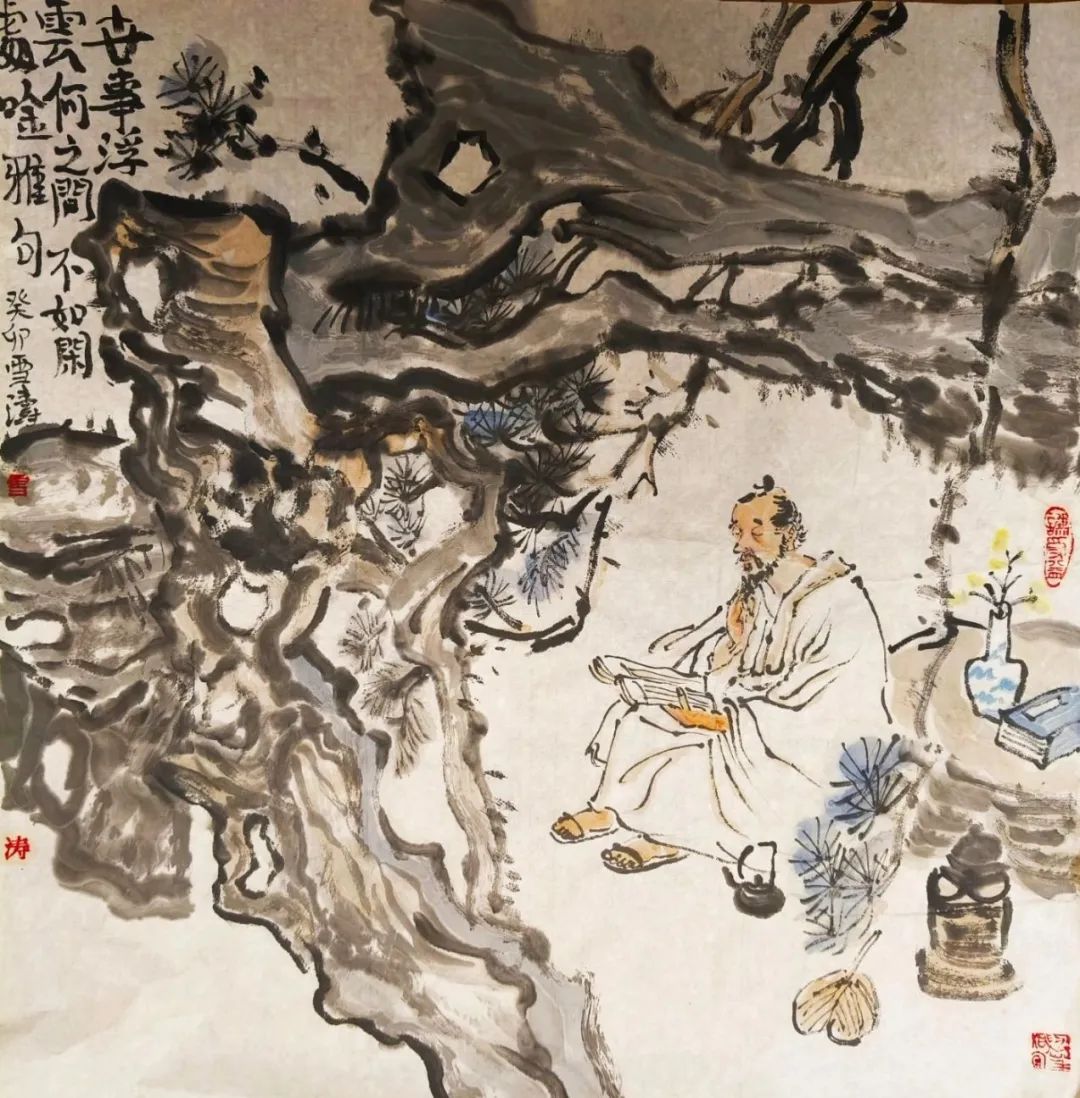 世事浮
雲何之間不如閑
處唫雅句癸卯雪濤
雪
涛